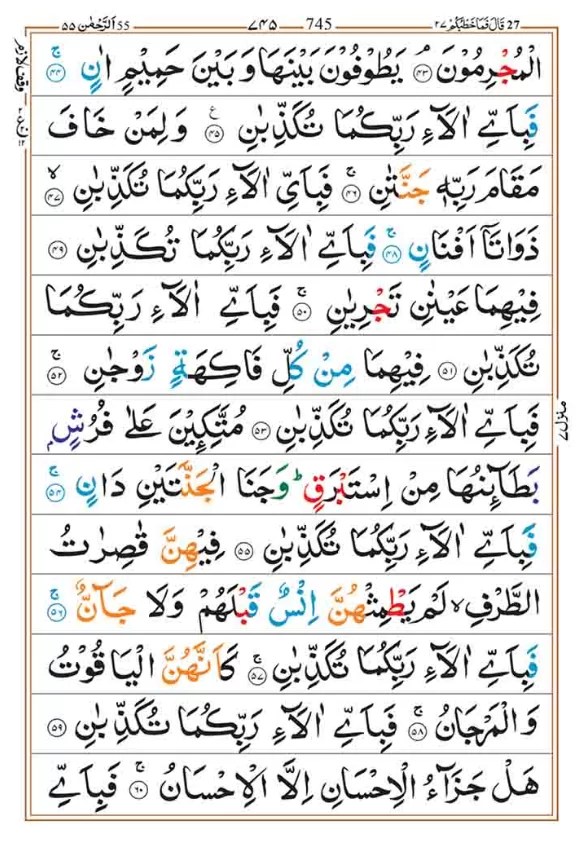 27 قَالَ فَمَا خَطْبُكُمْ ٢٧
745 ٧٤٥
55 اَلرَّحْمٰن ٥٥
الْمُجْرِمُوْنَ ۘ ﴿۴۳﴾ يَطُوْفُوْنَ بَيْنَهَا وَ بَيْنَ حَمِيْمٍ اٰنٍ ۚ ﴿۴۴﴾
فَبِاَيِّ اٰلَآءِ رَبِّكُمَا تُكَذِّبٰنِ ﴿۴۵﴾ ع وَ لِمَنْ خَافَ
مَقَامَ رَبِّهٖ جَنَّتٰنِ ۚ ﴿۴۶﴾ فَبِاَيِّ اٰلَآءِ رَبِّكُمَا تُكَذِّبٰنِ ۙ ﴿۴۷﴾
ذَوَاتَاۤ اَفْنَانٍ ۚ ﴿۴۸﴾ فَبِاَيِّ اٰلَآءِ رَبِّكُمَا تُكَذِّبٰنِ ﴿۴۹﴾
فِيْهِمَا عَيْنٰنِ تَجْرِيٰنِ ۚ ﴿۵۰﴾ فَبِاَيِّ اٰلَآءِ رَبِّكُمَا
تُكَذِّبٰنِ ﴿۵۱﴾ فِيْهِمَا مِنْ كُلِّ فَاكِهَةٍ زَوْجٰنِ ۚ ﴿۵۲﴾
فَبِاَيِّ اٰلَآءِ رَبِّكُمَا تُكَذِّبٰنِ ﴿۵۳﴾ مُتَّكِـِٕيْنَ عَلٰى فُرُشٍۭ
بَطَآىِٕنُهَا مِنْ اِسْتَبْرَقٍ ؕ وَ جَنَا الْجَنَّتَيْنِ دَانٍ ۚ ﴿۵۴﴾
فَبِاَيِّ اٰلَآءِ رَبِّكُمَا تُكَذِّبٰنِ ﴿۵۵﴾ فِيْهِنَّ قٰصِرٰتُ
الطَّرْفِ ۙ لَمْ يَطْمِثْهُنَّ اِنْسٌ قَبْلَهُمْ وَلَا جَآنٌّ ۚ ﴿۵۶﴾
فَبِاَيِّ اٰلَآءِ رَبِّكُمَا تُكَذِّبٰنِ ۚ ﴿۵۷﴾ كَاَنَّهُنَّ الْيَاقُوْتُ
وَ الْمَرْجَانُ ۚ ﴿۵۸﴾ فَبِاَيِّ اٰلَآءِ رَبِّكُمَا تُكَذِّبٰنِ ﴿۵۹﴾
هَلْ جَزَآءُ الْاِحْسَانِ اِلَّا الْاِحْسَانُ ۚ ﴿۶۰﴾ فَبِاَيِّ
وقف لازم
منزل ٧